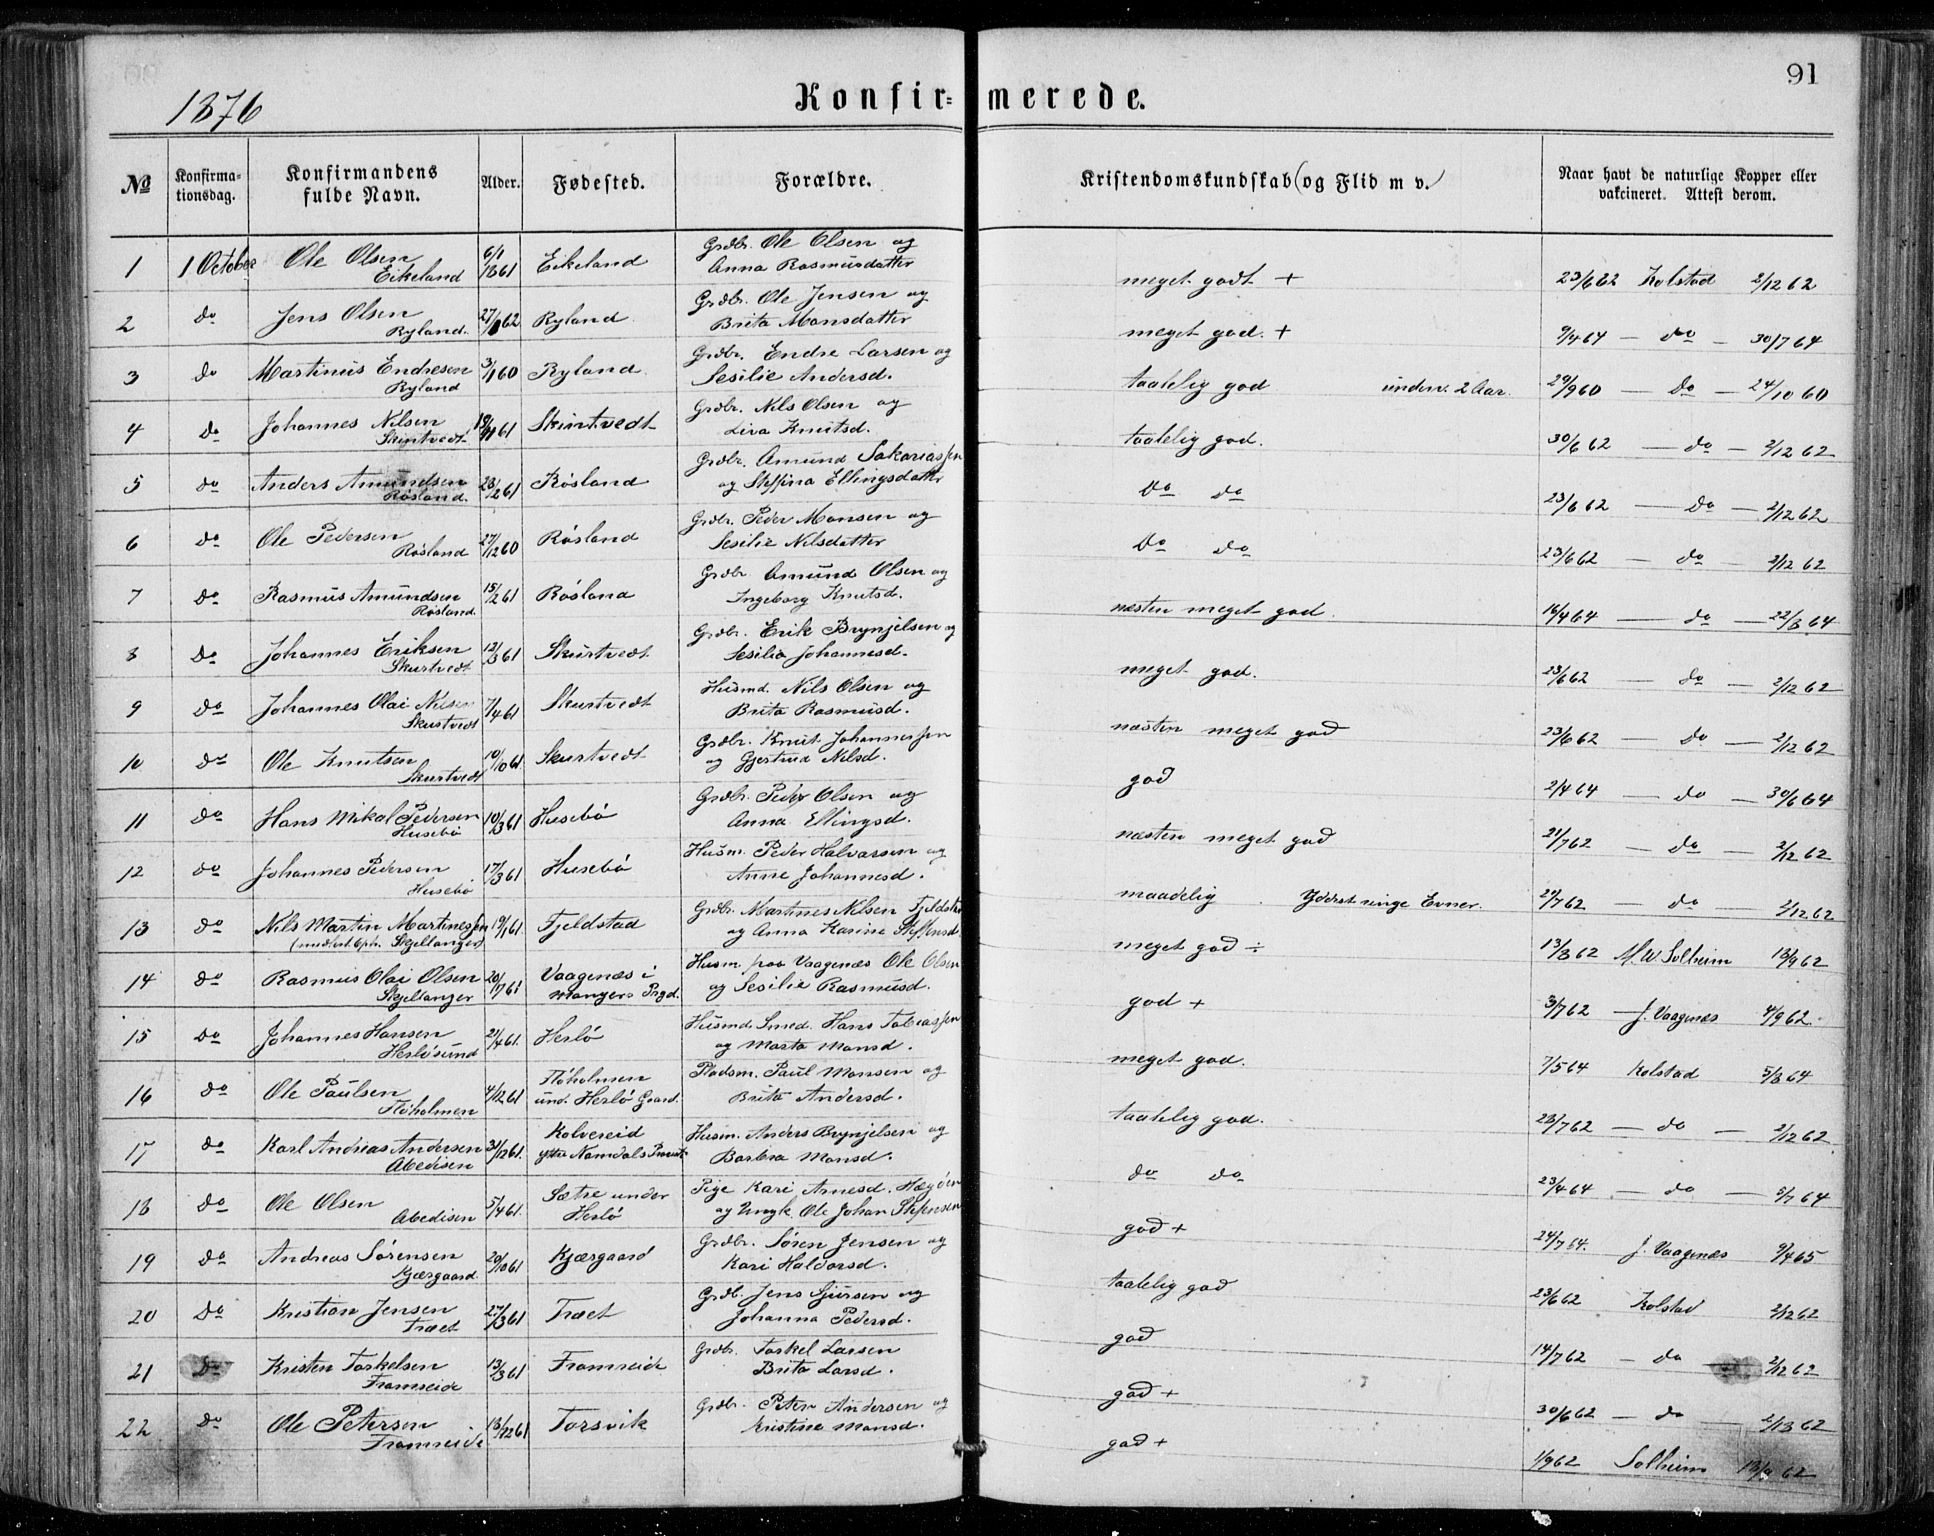 91
1876
Konfirmerede.
№ Konfirmationsdag. Konfirmandens fulde Navn. Alder. Fødested. Forældre. Kristendomskundskab (og Flid m v.) Naar havt de naturlige Kopper eller vakcineret. Attest derom.
1 1 October Ole Olsen Eikeland 6/1 1861 Eikeland Grdbr. Ole Olsen og Anna Rasmusdatter meget godt + 23/6 62 Kolstad 2/12 62
2 do Jens Olsen Ryland. 27/1 62 Ryland Grdbr. Ole Jensen og Brita Monsdatter meget god. + 9/4 64 — do — 30/7 64
3 do Martinus Endresen Ryland 3/1 60 Ryland. Grdbr. Endre Larsen og Sesilie Andersd. taalelig god underv. 2 Aar. 29/9 60 — do — 24/10 60
4 do Johannes Nilsen Skurtvedt 61 Skurtvedt Grdbr. Nils Olsen og Liva Knutsd. taalelig god. 30/6 62 — do — 2/12 62
5 do Anders Amundsen Røsland. 23/2 61 Røsland Grdbr. Amund Sakariassen og Steffina Ellingsdatter do do 23/6 62 — do — 2/12 62
6 do Ole Pedersen Røsland 27/12 60 Røsland Grdbr. Peder Monsen og Sesilie Nilsdatter do do 23/6 62 — do — 2/12 62
7 do Rasmus Amundsen Røsland. 15/2 61 Røsland Grdbr. Amund Olsen og Ingeborg Knutsd. næsten meget god. 16/4 64 — do — 22/8 64
8 do Johannes Eriksen Skurtvedt 12/3 61 Skurtvedt Grdbr. Erik Brynjelsen og Sesilia Johannesd. meget god. 23/6 62 — do — 2/12 62
9 do Johannes Olai Nilsen Skurtvedt 7/4 61 Skurtvedt Husmd. Nils Olsen og Brita Rasmusd. næsten meget god 23/6 62 — do — 2/12 62
10 do Ole Knutsen Skurtvedt 10/10 61. Skurtvedt Grdbr. Knut Johannessen og Gjertrud Nilsd. god 2/4 64 — do — 30/6 64
11 do Hans Mikal Pedersen Husebø 10/3 61 Husebø Grdbr. Peder Olsen og Anna Ellingsd. næsten meget god 21/7 62 — do — 2/12 62
12 do Johannes Pedersen Husebø 17/3 61 Husebø Husm. Peder Halvarsen og Anne Johannesd. maadelig. Yderst ringe Evner. 29/7 62 — do — 2/12 62
13 do Nils Martin Martinessen Skjeltanger) 19/1 61. Fjeldstad Grdbr. Martines Nilsen Fjeldstad og Anna Karine Steffensd. meget god ÷ 13/8 62 M. W. Solheim 13/9 62
14 do Rasmus Olai Olsen Skjeltanger 20/7 61 Vaagenæs i Mangers Prgd. Husm. paa Vaagenæs Ole Olsen og Sesilie Rasmusd. god + 3/7 62 — J. Vaagenæs 4/9 62.
15 do Johannes Hansen Herløsund 21/4 61. Herlø Husmd. Smed. Hans Tobiassen og Marta Monsd. meget god. 7/5 64 Kolstad 5/8 64
16 do Ole Paulsen Fløholmen 4/12 61 Fløholmen und. Herlø Gaard. Pladsm. Paul Monsen og Brita Andersd. taalelig god. 23/7 62 — do — 2/12 62
17 do Karl Andreas Andersen Abedisen 31/12 61. Kolvereid Ytre Namdals Husm. Anders Brynjelsen og Barbra Monsd. do do 23/4 64 — do — 5/7 64
18 do Ole Olsen Abedisen 5/4 61. Sætre under Herlø Pige Kari Arnesd. og Ungk. Ole Johan Steffensen god + 24/7 64. J. Vaagenæs 9/4 65
19 do Andreas Sørensen Kjærgaard. 20/10 61 Kjærgaard Grdbr. Søren Jensen og Kari Haldorsd. taalelig god 23/6 62 Kolstad 2/12 62
20 do Kristian Jensen Træet 27/3 61 Træet Grdb. Jens Sjursen og Johanna Pedersd. god 14/7 62 — do — 2/12 62
21 do Kristen Torkelsen Framreide 13/3 61 Framreide Grdbr. Torkel Larsen Brita Larsd. god + 30/6 62 — do — 2/13 62
22 do Ole Petersen Framreide 13/12 61 Torsvik Grdbr. Peter Andersen og Kristine Monsd. god + 1/9 62 Solheim 13/9 62